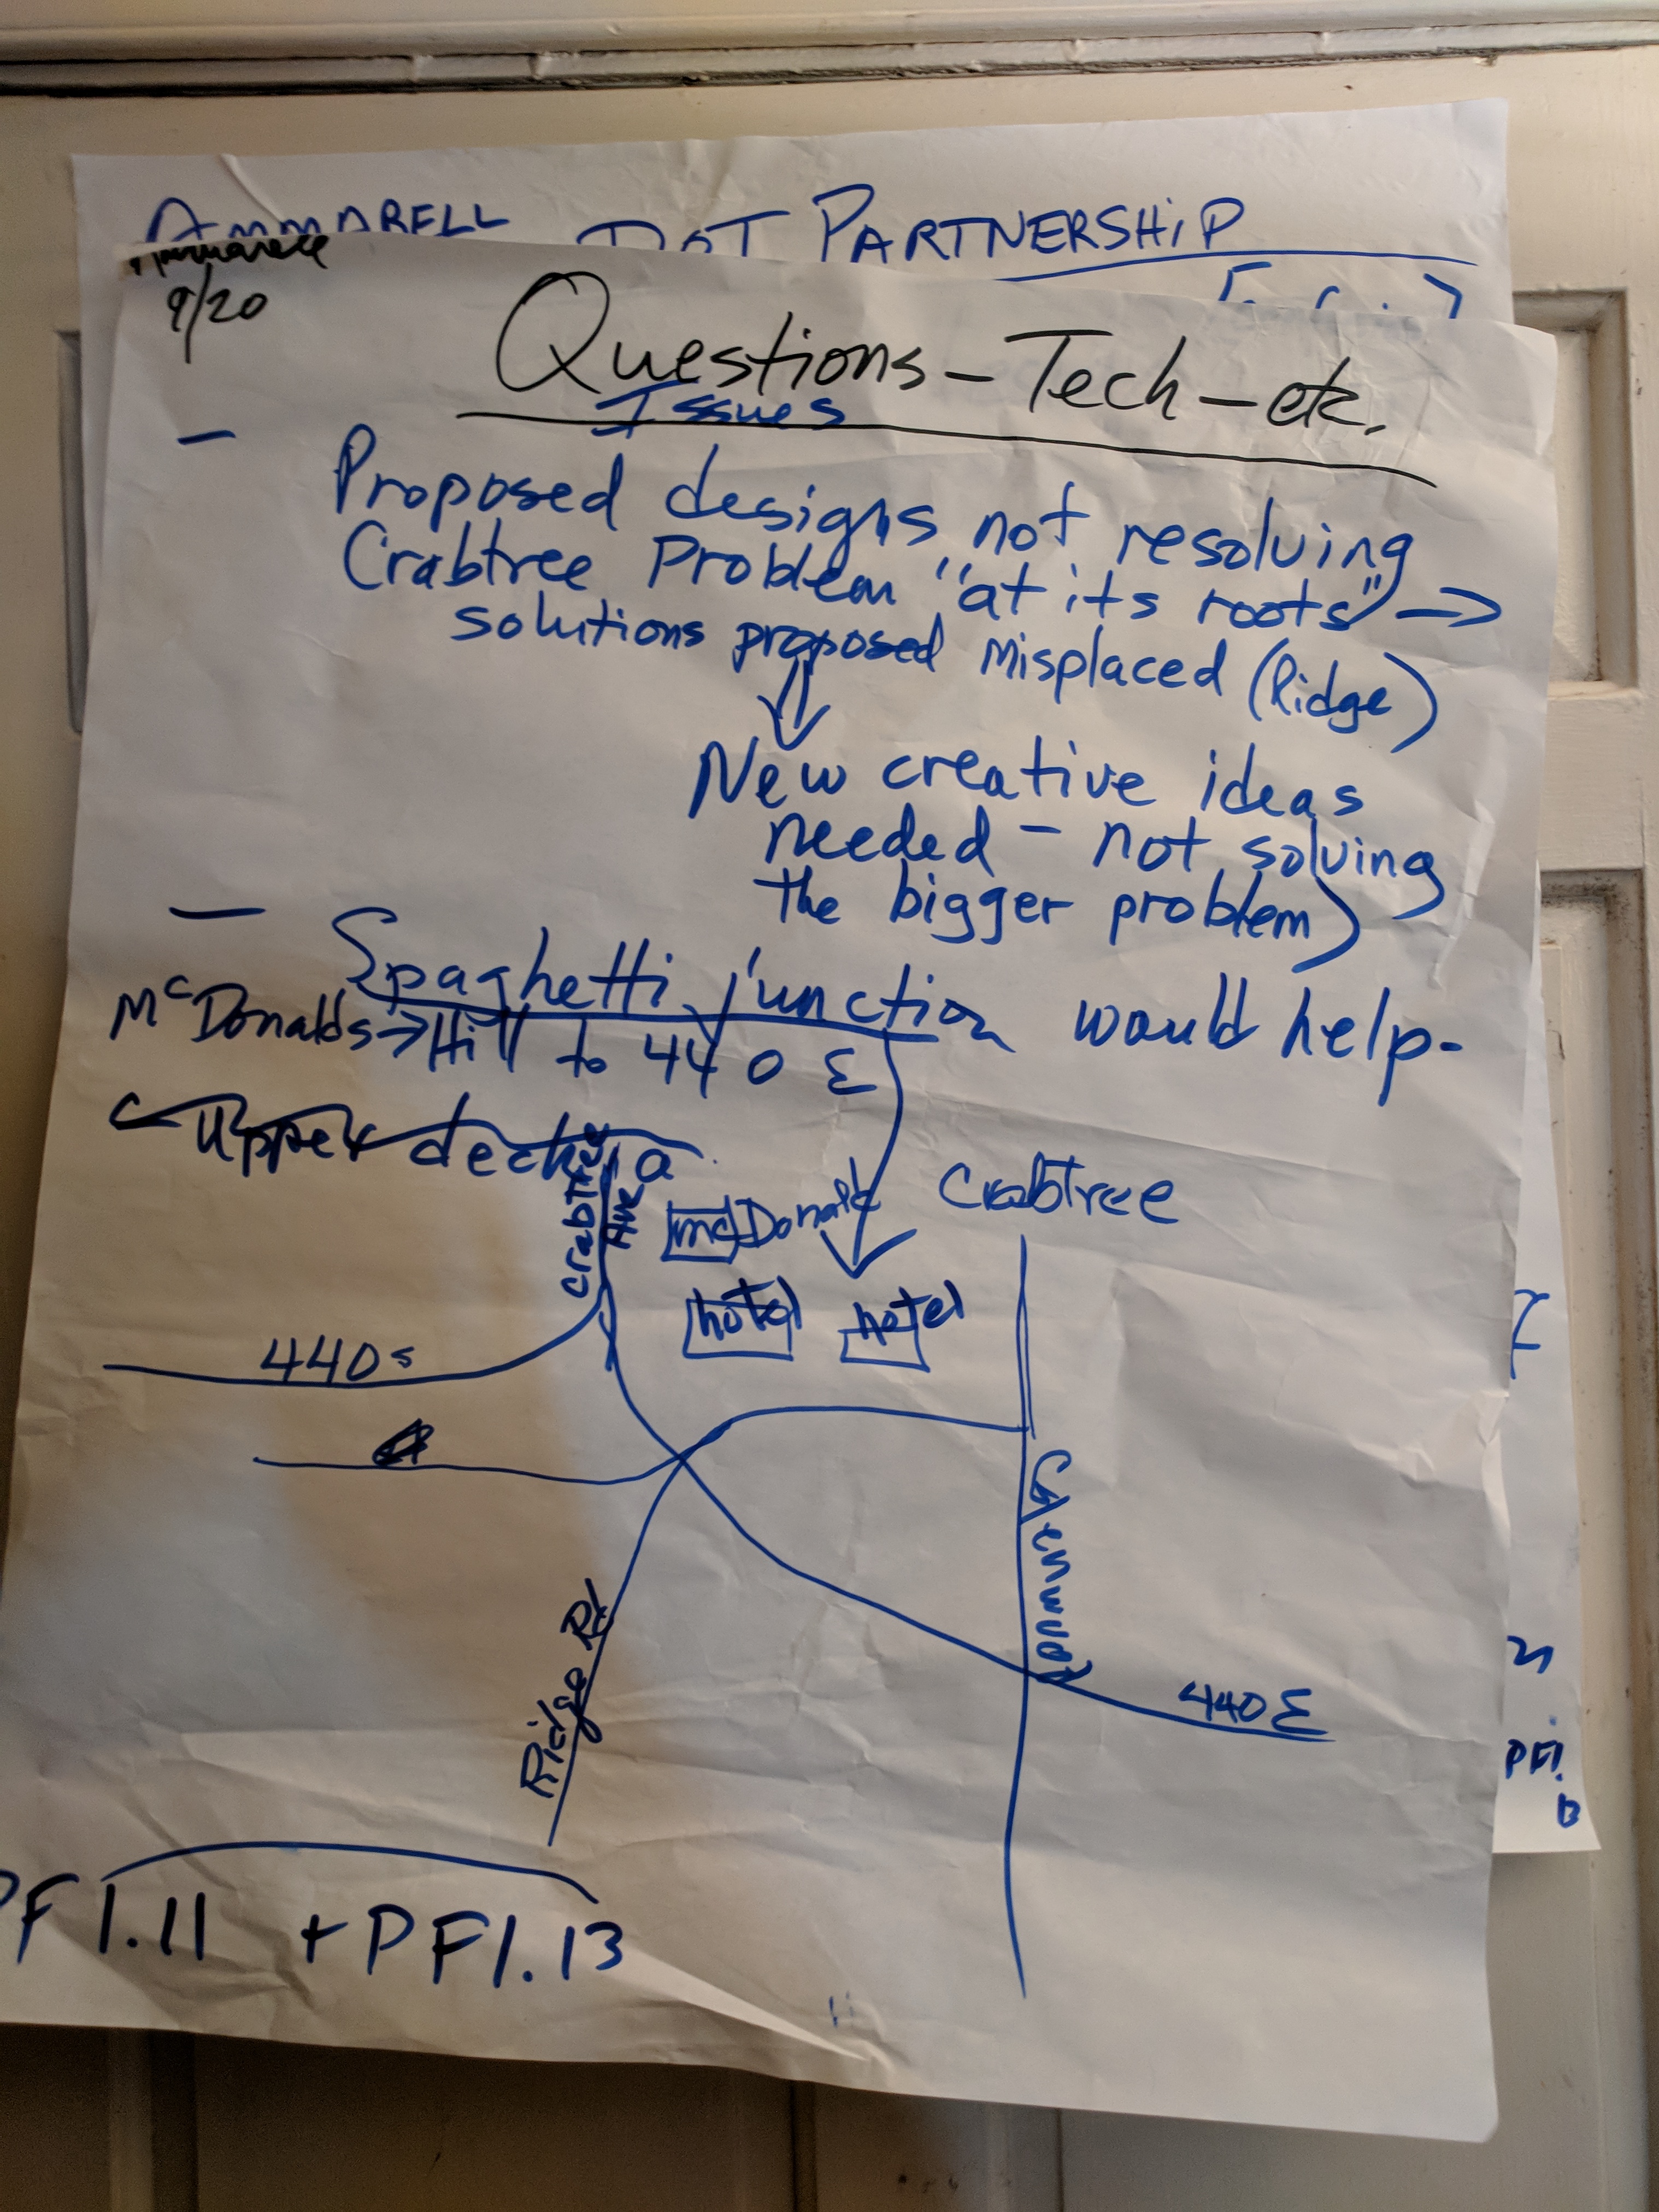 AMMARELL DOT PARTNERSHIP
9/20
Questions - Tech - etc.
Issues
— Proposed designs not resolving
Crabtree Problem "at its roots" →
solutions proposed misplaced (Ridge)
New creative ideas
needed - not solving
the bigger problem)
— Spaghetti junction would help -
McDonalds → Hill to 440 E
Upper deck a
Crabtree
Ave
McDonald
Crabtree
hotel
hotel
440s
Glenwood
Ridge Rd
440E
PF1.
13
PF 1.11 + PF1.13